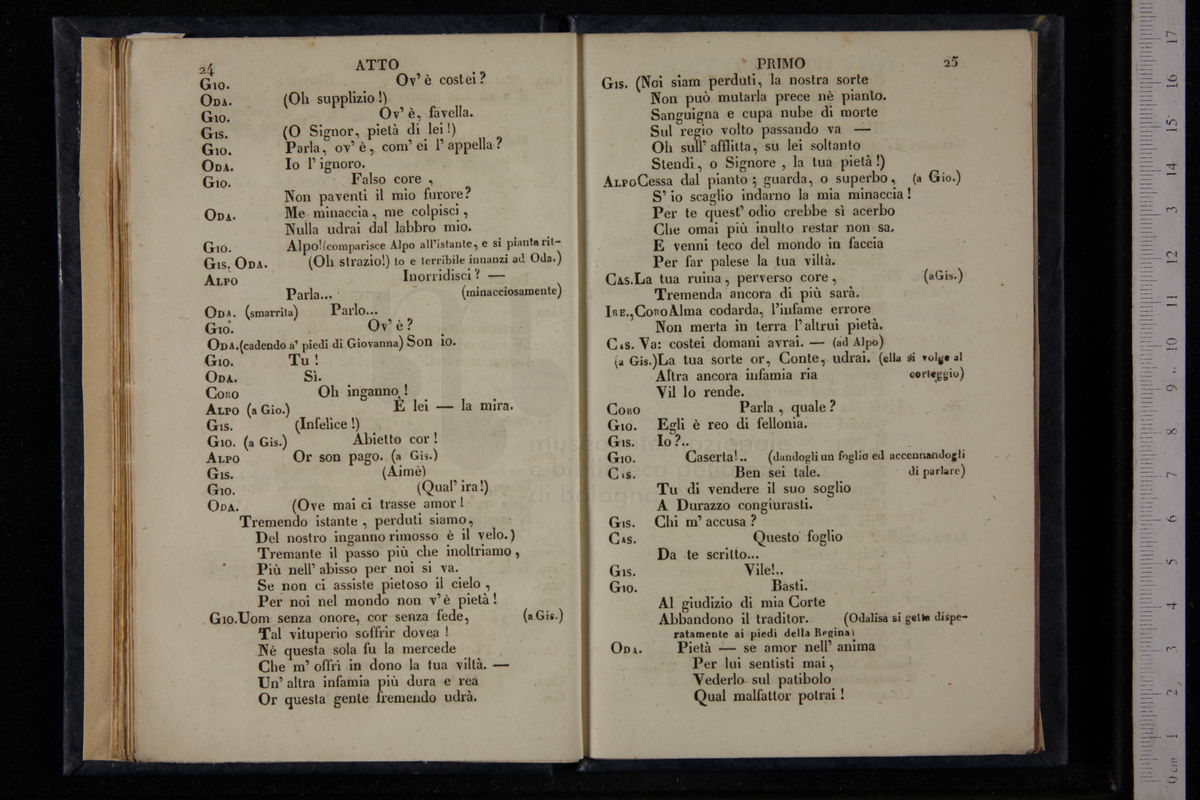 24
ATTO
Gio. Ov' è costei?
Oda. (Oh supplizio!)
Gio. Ov' è, favella.
Gis. (O Signor, pietà di lei!)
Gio. Parla, ov' è, com' ei l' appella?
Oda. Io l' ignoro.
Gio. Falso core,
Non paventi il mio furore?
Oda. Me minaccia, me colpisci,
Nulla udrai dal labbro mio.
Gio. Alpo! (comparisce Alpo all'istante, e si pianta rit-
Gis. Oda. (Oh strazio!) to e terribile innanzi ad Oda.)
Alpo Inorridisci? —
Parla... (minacciosamente)
Oda. (smarrita) Parlo...
Gio. Ov' è?
Oda. (cadendo a' piedi di Giovanna) Son io.
Gio. Tu!
Oda. Sì.
Coro Oh inganno!
Alpo (a Gio.) È lei — la mira.
Gis. (Infelice!)
Gio. (a Gis.) Abietto cor!
Alpo Or son pago. (a Gis.)
Gis. (Aimè)
Gio. (Qual' ira!)
Oda. (Ove mai ci trasse amor!
Tremendo istante, perduti siamo,
Del nostro inganno rimosso è il velo.)
Tremante il passo più che inoltriamo,
Più nell' abisso per noi si va.
Se non ci assiste pietoso il cielo,
Per noi nel mondo non v' è pietà!
Gio. Uom senza onore, cor senza fede, (a Gis.)
Tal vituperio soffrir dovea!
Nè questa sola fu la mercede
Che m' offrì in dono la tua viltà. —
Un' altra infamia più dura e rea
Or questa gente fremendo udrà.
PRIMO
25
Gis. (Noi siam perduti, la nostra sorte
Non può mutarla prece nè pianto.
Sanguigna e cupa nube di morte
Sul regio volto passando va —
Oh sull' afflitta, su lei soltanto
Stendi, o Signore, la tua pietà!)
Alpo Cessa dal pianto; guarda, o superbo, (a Gio.)
S' io scaglio indarno la mia minaccia!
Per te quest' odio crebbe sì acerbo
Che omai più inulto restar non sa.
E venni teco del mondo in faccia
Per far palese la tua viltà.
Cas. La tua ruina, perverso core, (a Gis.)
Tremenda ancora di più sarà.
Ire., Coro Alma codarda, l'infame errore
Non merta in terra l'altrui pietà.
Cas. Va: costei domani avrai. — (ad Alpo)
(a Gis.) La tua sorte or, Conte, udrai. (ella si volge al
Altra ancora infamia ria corteggio)
Vil lo rende.
Coro Parla, quale?
Gio. Egli è reo di fellonia.
Gis. Io?..
Gio. Caserta!.. (dandogli un foglio ed accennandogli
Cas. Ben sei tale. di parlare)
Tu di vendere il suo soglio
A Durazzo congiurasti.
Gis. Chi m' accusa?
Cas. Questo foglio
Da te scritto...
Gis. Vile!..
Gio. Basti.
Al giudizio di mia Corte
Abbandono il traditor. (Odalisa si getta dispe-
ratamente ai piedi della Regina)
Oda. Pietà — se amor nell' anima
Per lui sentisti mai,
Vederlo sul patibolo
Qual malfattor potrai!